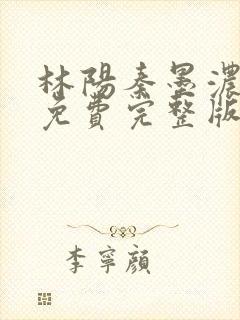 林陽秦墨濃
免費完整版
李寧顏